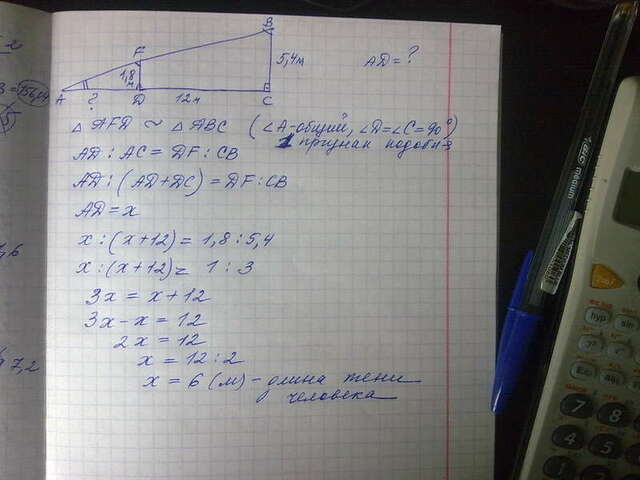 B
F
5,4м
AD = ?
1,8
м
A
?
D
12м
C
△ AFD ~ △ ABC (∠A-общий, ∠D=∠C=90°)
1 признак подобия
AD : AC = DF : CB
AD : (AD+DC) = DF : CB
AD = x
x : (x+12) = 1,8 : 5,4
x : (x+12) = 1 : 3
3x = x + 12
3x - x = 12
2x = 12
x = 12 : 2
x = 6 (м) - длина тени
человека
medium
hyp
sin
7
8
4
5
1
2
7,2